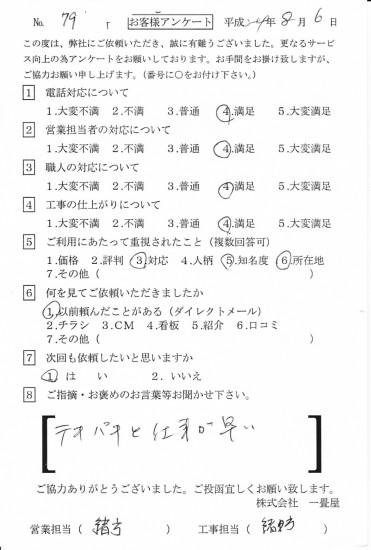 No. 79 「お客様アンケート 平成24年8月6日
この度は、弊社にご依頼いただき、誠に有難うございました。更なるサービ
ス向上の為アンケートをお願いしております。お手間をお掛け致しますが、
ご協力お願い申し上げます。(番号に○をお付け下さい。)
1 電話対応について
1.大変不満 2.不満 3.普通 4.満足 5.大変満足
2 営業担当者の対応について
1.大変不満 2.不満 3.普通 4.満足 5.大変満足
3 職人の対応について
1.大変不満 2.不満 3.普通 4.満足 5.大変満足
4 工事の仕上がりについて
1.大変不満 2.不満 3.普通 4.満足 5.大変満足
5 ご利用にあたって重視されたこと(複数回答可)
1.価格 2.評判 3.対応 4.人柄 5.知名度 6.所在地
7.その他( )
6 何を見てご依頼いただきましたか
1.以前頼んだことがある(ダイレクトメール)
2.チラシ 3.CM 4.看板 5.紹介 6.口コミ
7.その他( )
7 次回も依頼したいと思いますか
1. は い 2. いいえ
8 ご指摘・お褒めのお言葉等お聞かせ下さい。
テキパキと仕事が早い
ご協力ありがとうございました。ご投函宜しくお願い致します。
株式会社 一畳屋
営業担当( 緒方 ) 工事担当( 緒方 )